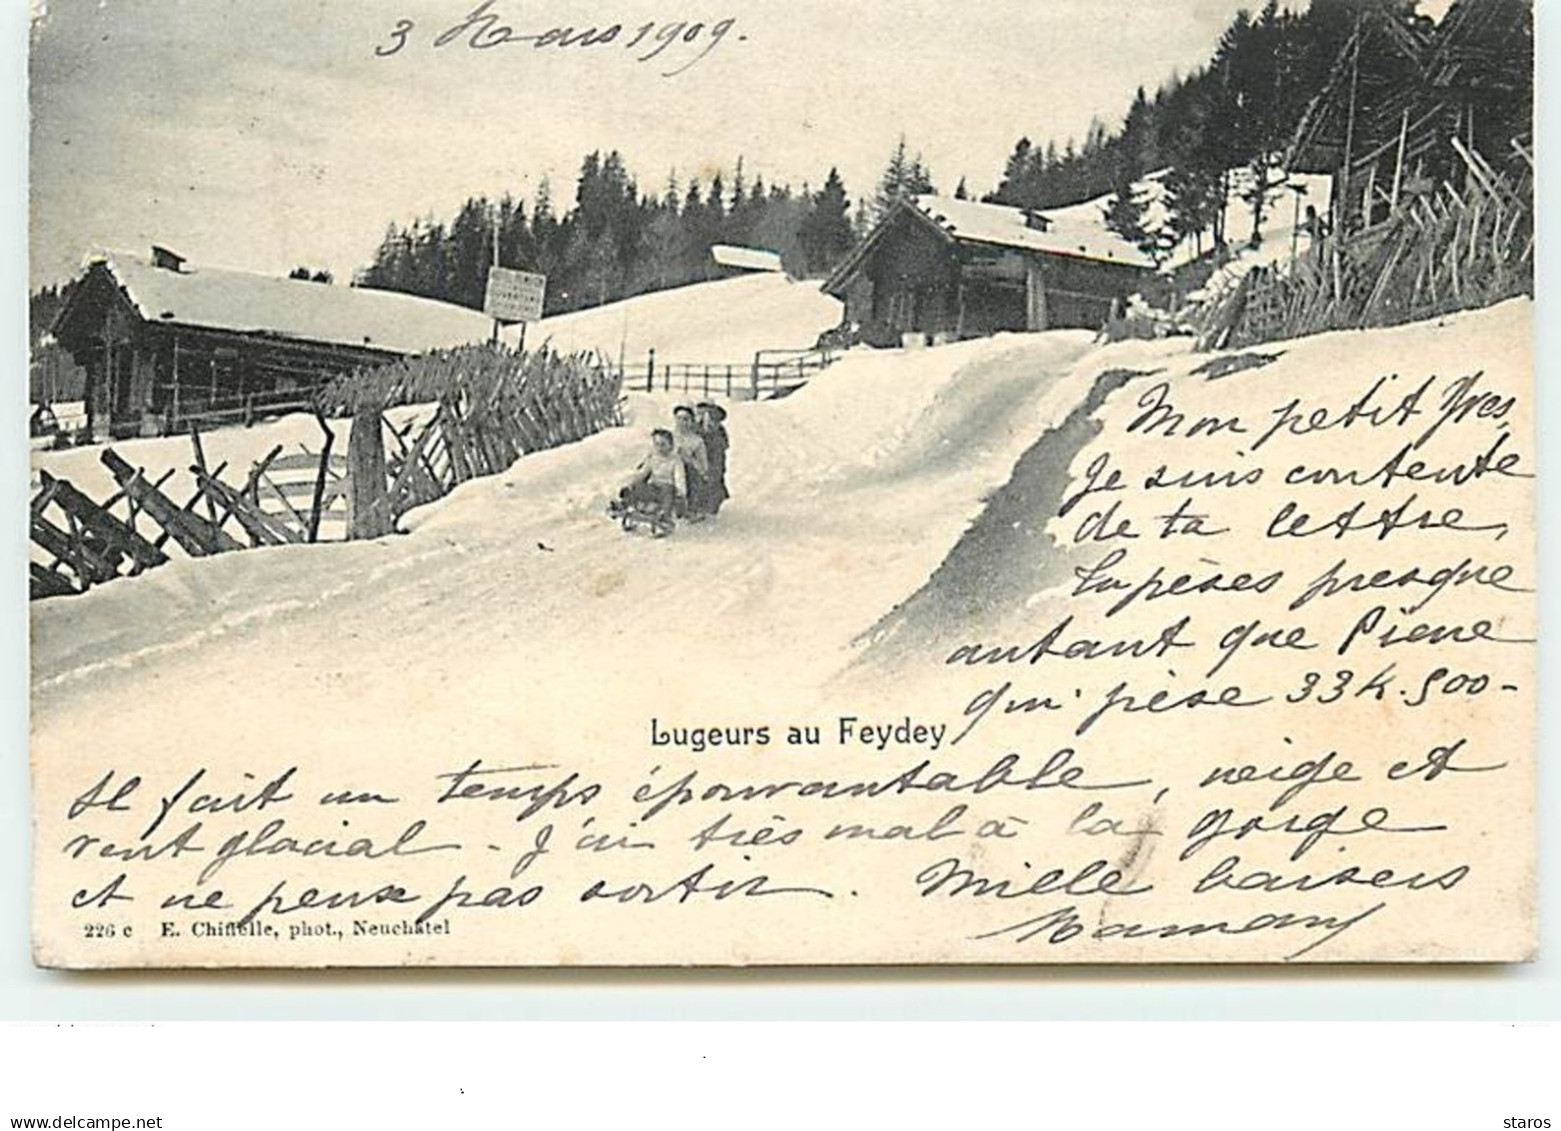 3 Mars 1909.
Mon petit Yves,
Je suis contente
de ta lettre,
tu pèses presque
autant que Pierre
qui pèse 33 k. 500 -
Lugeurs au Feydey
Il fait un temps épouvantable, neige et
vent glacial - J'ai très mal à la gorge
et ne peux pas sortir. Mille baisers
Maman
226 c E. Chiffelle, phot., Neuchâtel
www.delcampe.net
staros